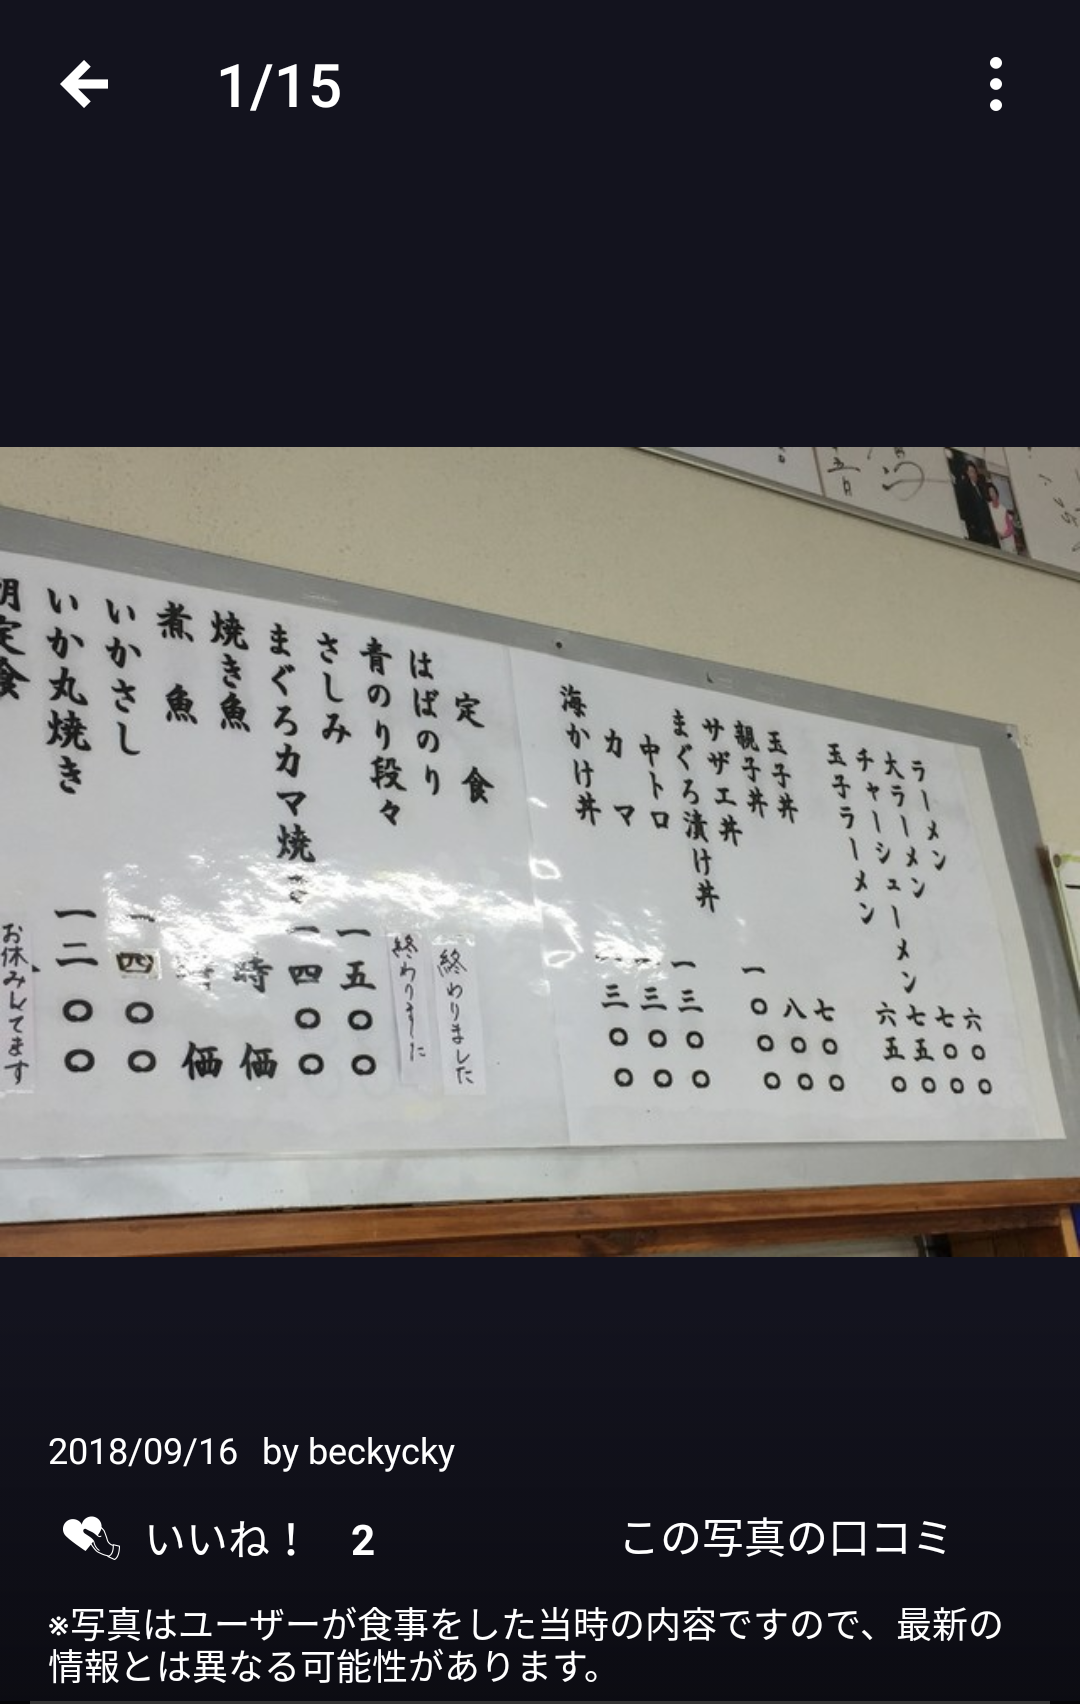 1/15
ラーメン 六〇〇
大ラーメン 七〇〇
チャーシューメン 七五〇
玉子ラーメン 六五〇
玉子丼 七〇〇
親子丼 八〇〇
サザエ丼 一〇〇〇
まぐろ漬け丼 一三〇〇
中トロ 一三〇〇
カマ 一三〇〇
海かけ丼
定食
はばのり 終わりました
青のり段々 終わりました
さしみ 一五〇〇
まぐろカマ焼き 一四〇〇
焼き魚 時価
煮魚 時価
いかさし 一四〇〇
いか丸焼き 一二〇〇
定食 お休みしてます
2018/09/16 by beckycky
いいね！ 2
この写真の口コミ
※写真はユーザーが食事をした当時の内容ですので、最新の
情報とは異なる可能性があります。